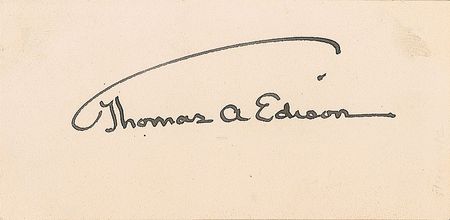 Thomas A Edison